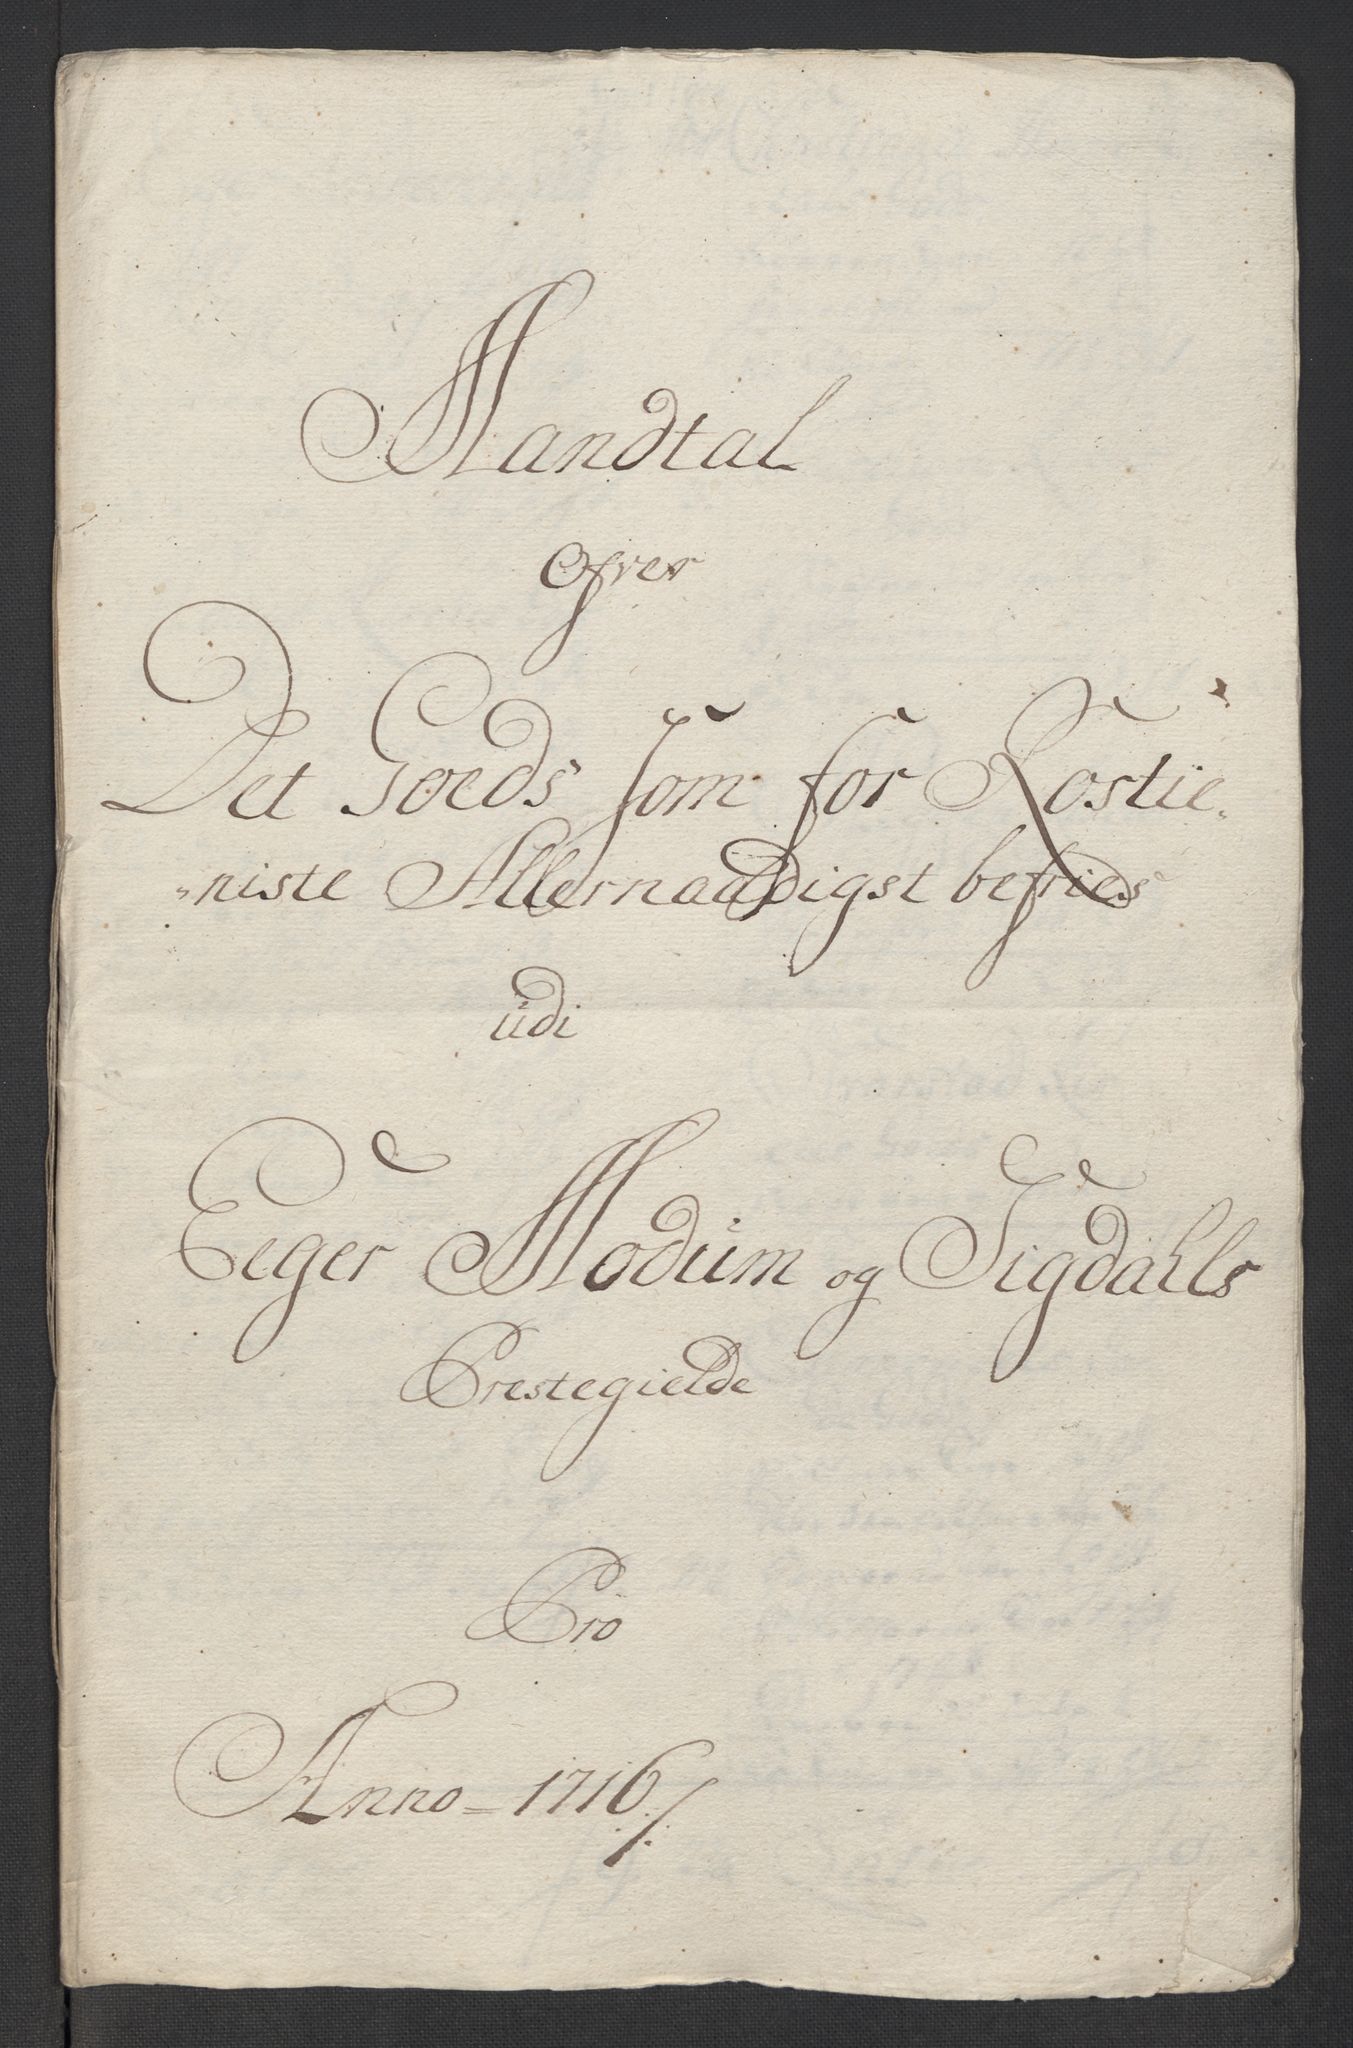 Mandtal
Ofver
Det Goeds som for Rostie„
„niste Allernaadigst befries
udi
Eeger Modum og Sigdahls
Prestegielde
Pro
Anno = 1716 /.